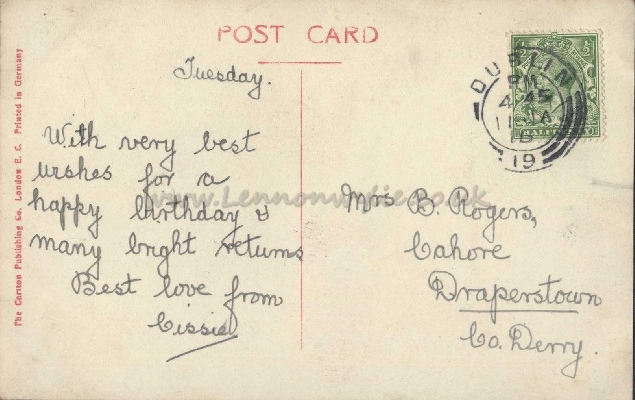 POST CARD
Tuesday.
With very best
wishes for a
happy birthday &
many bright returns
Best love from
Cissie
Mrs B. Rogers,
Cahore
Draperstown
Co. Derry.
DUBLIN
4.45
11 JA
19
HALF
www.Lennonwylie.co.uk
The Carlton Publishing Co. London E. C. Printed in Germany